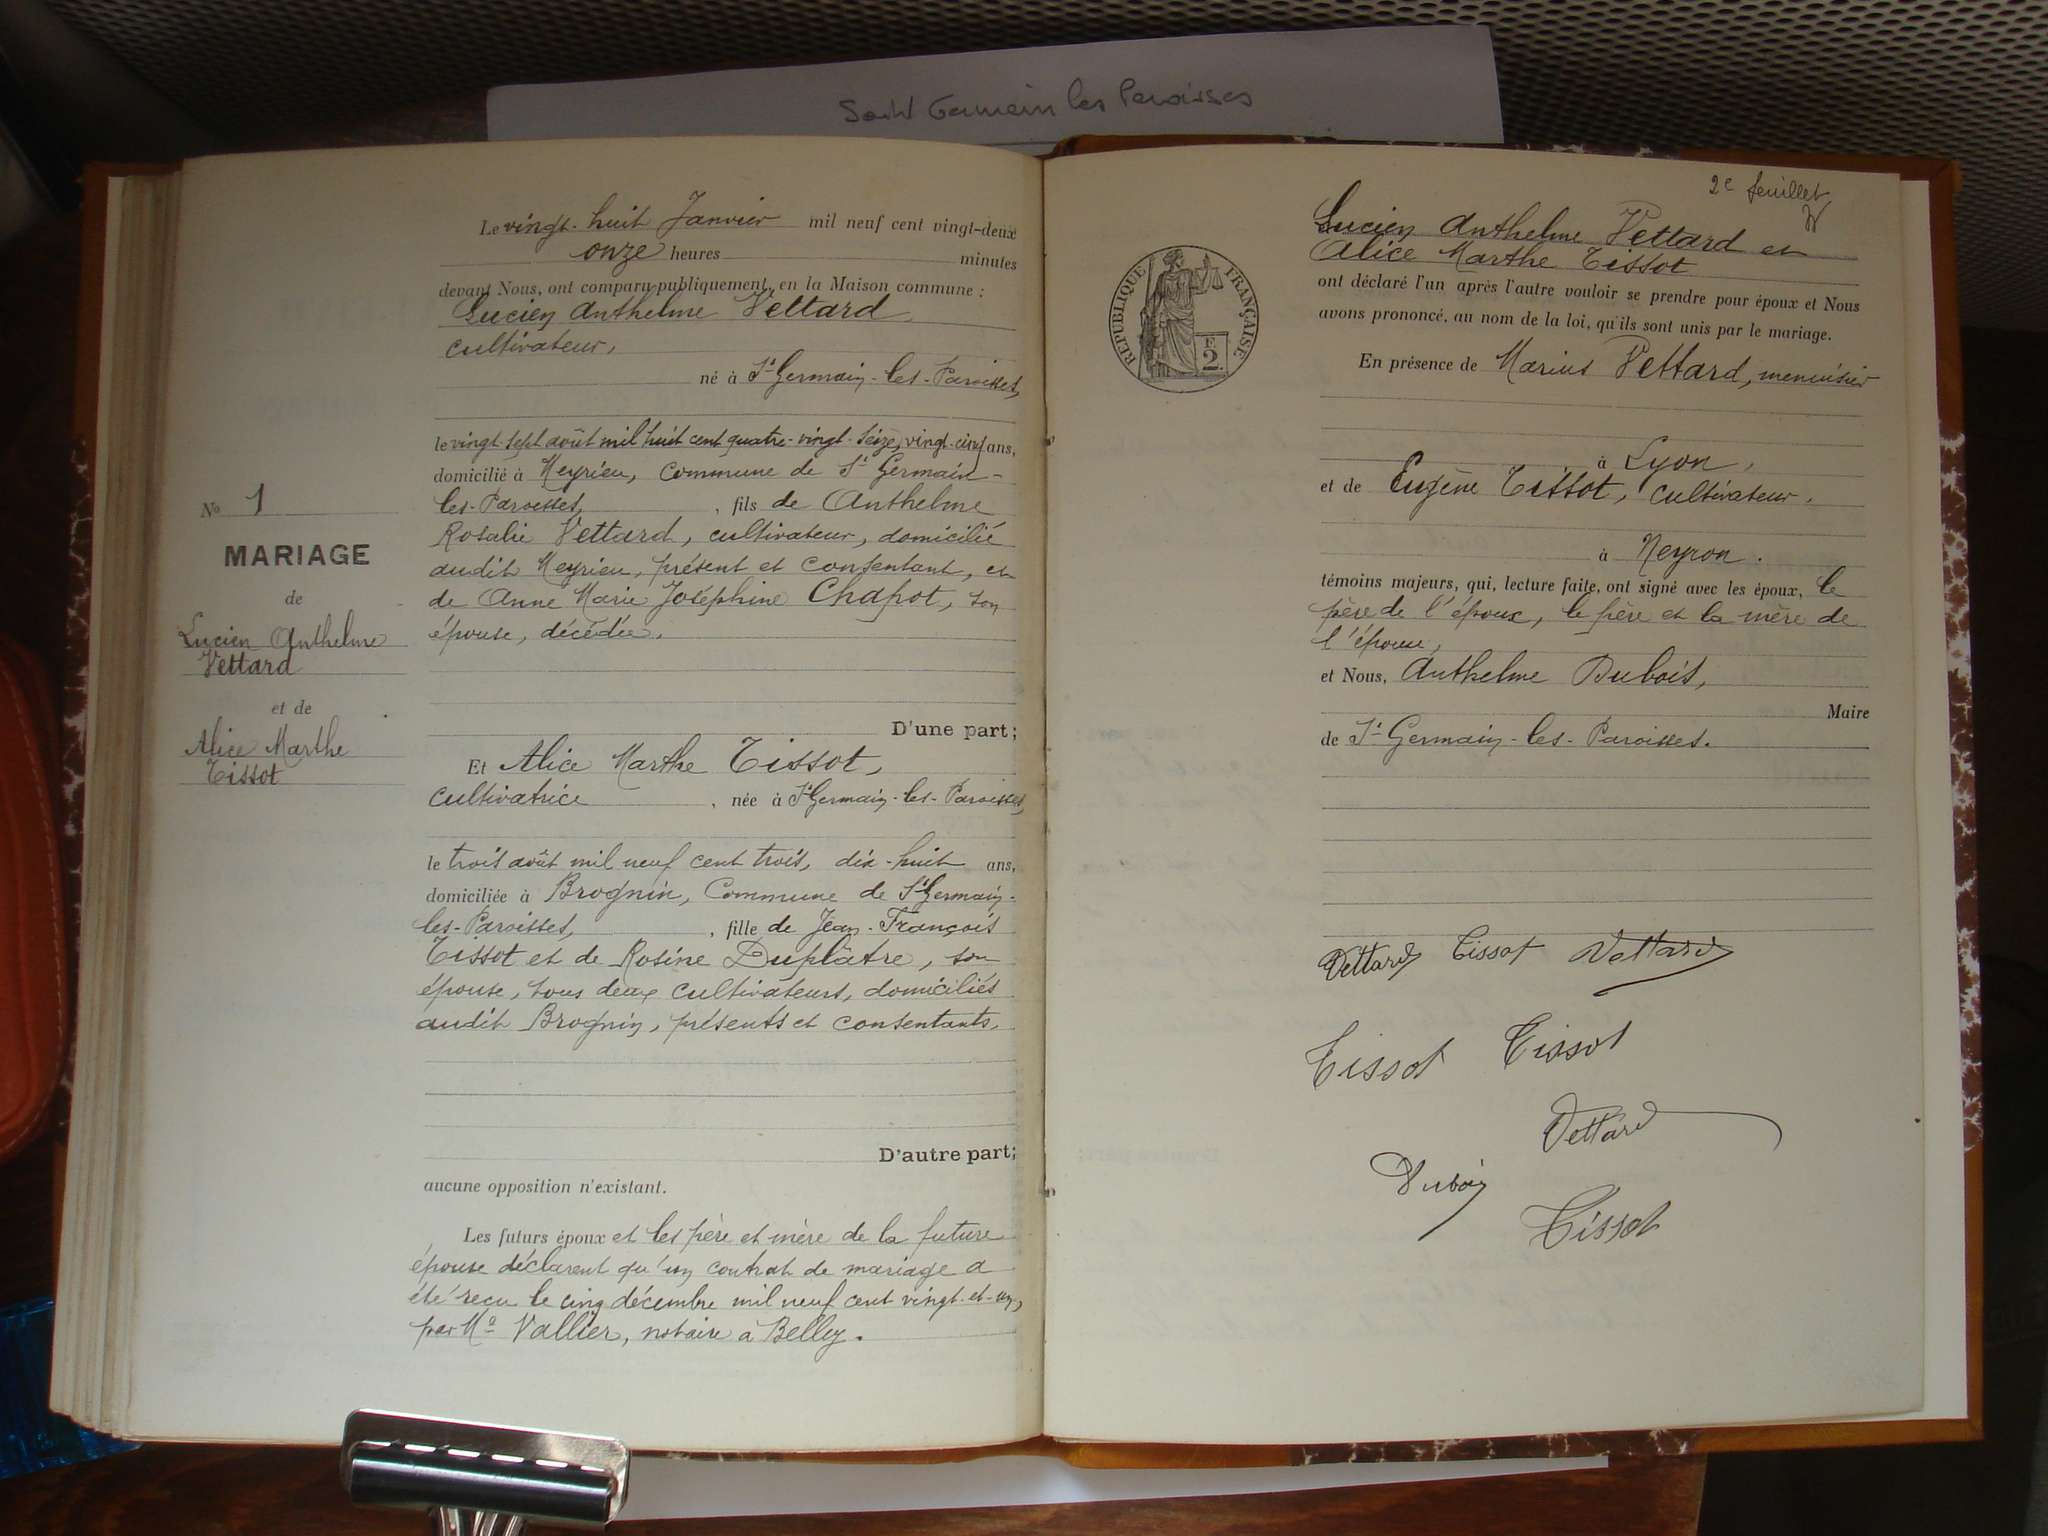 Saint Germain les Paroisses
Le vingt-huit Janvier mil neuf cent vingt-deux
onze heures minutes
devant Nous, ont comparu publiquement, en la Maison commune :
Lucien Anthelme Vettard,
cultivateur,
né à St Germain-les-Paroisses,
le vingt-sept août mil huit cent quatre-vingt-seize, vingt-cinq ans,
domicilié à Meyrieu, commune de St Germain-
les-Paroisses, , fils de Anthelme
Rosalie Vettard, cultivateur, domicilié
audit Meyrieu, présent et consentant, et
de Anne Marie Joséphine Chapot, son
épouse, décédée.
D'une part;
No 1
MARIAGE
de
Lucien Anthelme
Vettard
et de
Alice Marthe
Tissot
Et Alice Marthe Tissot,
cultivatrice , née à St Germain-les-Paroisses,
le trois août mil neuf cent trois, dix-huit ans,
domiciliée à Brognin, Commune de St Germain-
les-Paroisses, , fille de Jean-François
Tissot et de Rosine Duplâtre, son
épouse, tous deux cultivateurs, domiciliés
audit Brognin, présents et consentants.
D'autre part;
aucune opposition n'existant.
Les futurs époux et les père et mère de la future
épouse déclarent qu'un contrat de mariage a
été reçu le cinq décembre mil neuf cent vingt-et-un,
par Me Vallier, notaire à Belley.
2e feuillet
RÉPUBLIQUE FRANÇAISE
F
2.
Lucien Anthelme Vettard et
Alice Marthe Tissot
ont déclaré l'un après l'autre vouloir se prendre pour époux et Nous
avons prononcé, au nom de la loi, qu'ils sont unis par le mariage.
En présence de Marius Vettard, menuisier
à Lyon,
et de Eugène Tissot, cultivateur,
à Neyron.
témoins majeurs, qui, lecture faite, ont signé avec les époux, le
père de l'époux, le père et la mère de
l'épouse,
et Nous, Anthelme Dubois,
Maire
de St Germain-les-Paroisses.
Vettard Tissot Vettard
Tissot Tissot
Vettard
Dubois
Tissot